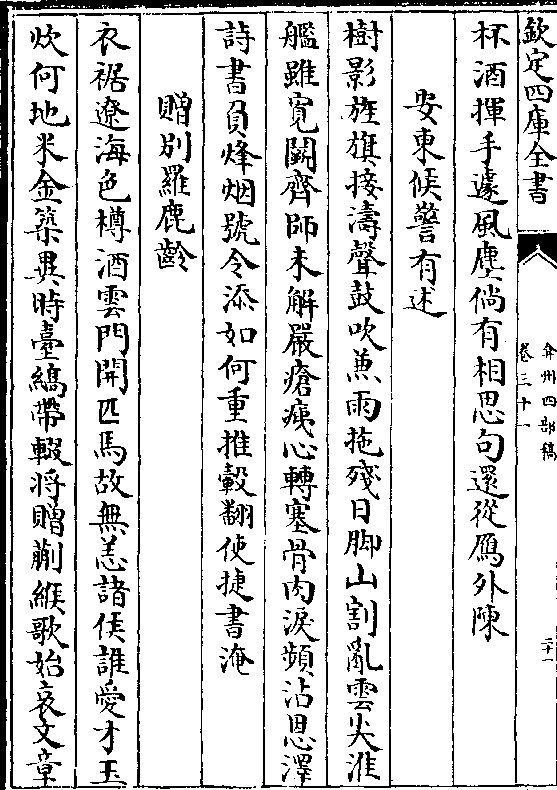 欽定四庫全書
弇州四部稿
卷三十一
二十一
杯酒揮手遽風塵倘有相思句還從鴈外陳
安東候警有述
樹影旌旗接濤聲鼓吹兼雨拖殘日脚山割亂雲尖淮
艦雖寛鬭齊師未解嚴瘡痍心轉塞骨肉淚頻沾恩澤
詩書負烽烟號令添如何重推轂翻使捷書淹
贈别羅鹿齡
衣裾遼海色樽酒雲門開匹馬故無恙諸侯誰愛才玉
炊何地米金築異時臺縞帶輟將贈蒯緱歌始哀文章